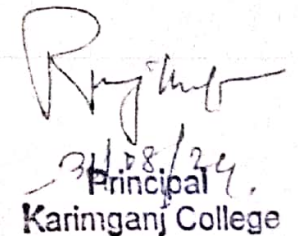 31/08/24.
Principal
Karimganj College